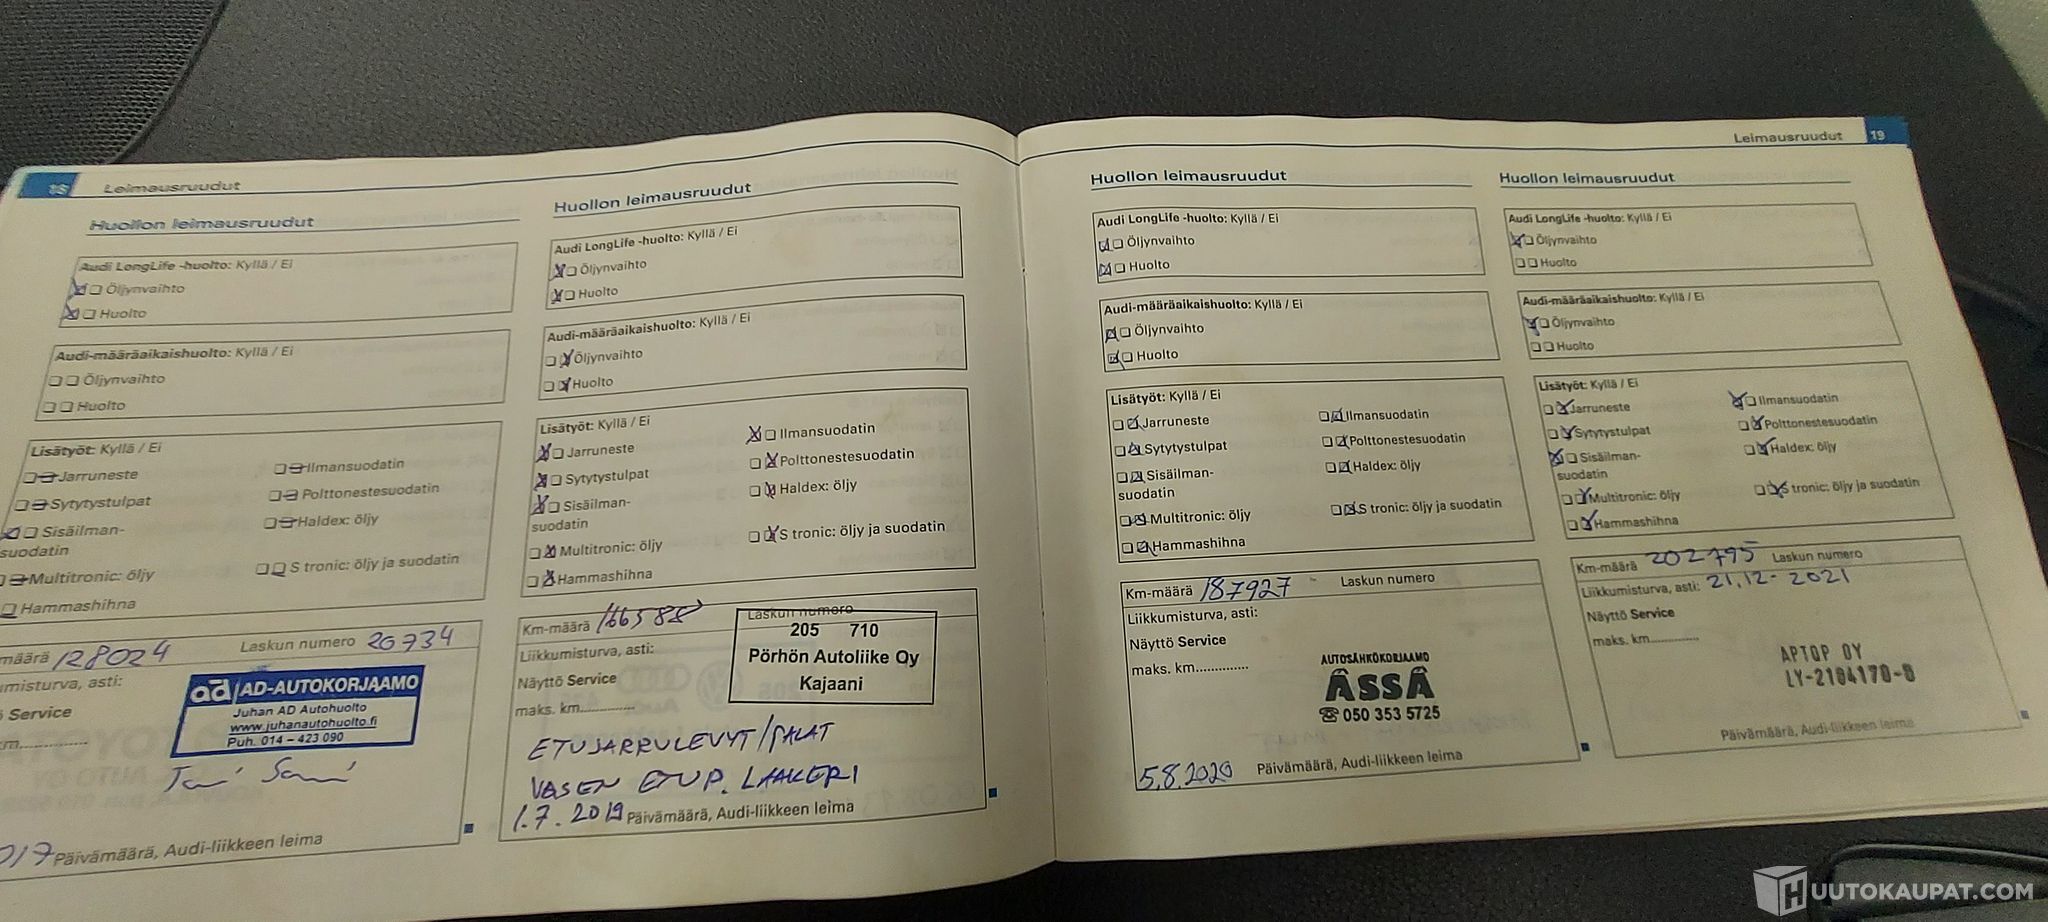 18 Leimausruudut
Huollon leimausruudut
Audi LongLife -huolto: Kyllä / Ei
Öljynvaihto
Huolto
Audi-määräaikaishuolto: Kyllä / Ei
Öljynvaihto
Huolto
Lisätyöt: Kyllä / Ei
Jarruneste
Ilmansuodatin
Sytytystulpat
Polttonestesuodatin
Sisäilman-
suodatin
Haldex: öljy
Multitronic: öljy
S tronic: öljy ja suodatin
Hammashihna
määrä 128024 Laskun numero 20734
misturva, asti:
Service
km..............
ad AD-AUTOKORJAAMO
Juhan AD Autohuolto
www.juhanautohuolto.fi
Puh. 014 – 423 090
017 Päivämäärä, Audi-liikkeen leima
Huollon leimausruudut
Audi LongLife -huolto: Kyllä / Ei
Öljynvaihto
Huolto
Audi-määräaikaishuolto: Kyllä / Ei
Öljynvaihto
Huolto
Lisätyöt: Kyllä / Ei
Jarruneste
Ilmansuodatin
Sytytystulpat
Polttonestesuodatin
Sisäilman-
suodatin
Haldex: öljy
Multitronic: öljy
S tronic: öljy ja suodatin
Hammashihna
Km-määrä 166588 Laskun numero
Liikkumisturva, asti:
Näyttö Service
maks. km..............
205 710
Pörhön Autoliike Oy
Kajaani
ETUJARRULEVYT/PALAT
VASEN ETUP. LAAKERI
1.7.2019 Päivämäärä, Audi-liikkeen leima
Leimausruudut 19
Huollon leimausruudut
Audi LongLife -huolto: Kyllä / Ei
Öljynvaihto
Huolto
Audi-määräaikaishuolto: Kyllä / Ei
Öljynvaihto
Huolto
Lisätyöt: Kyllä / Ei
Jarruneste
Ilmansuodatin
Sytytystulpat
Polttonestesuodatin
Sisäilman-
suodatin
Haldex: öljy
Multitronic: öljy
S tronic: öljy ja suodatin
Hammashihna
Km-määrä 187927 Laskun numero
Liikkumisturva, asti:
Näyttö Service
maks. km..............
AUTOSÄHKÖKORJAAMO
ÄSSÄ
☎ 050 353 5725
5.8.2020 Päivämäärä, Audi-liikkeen leima
Huollon leimausruudut
Audi LongLife -huolto: Kyllä / Ei
Öljynvaihto
Huolto
Audi-määräaikaishuolto: Kyllä / Ei
Öljynvaihto
Huolto
Lisätyöt: Kyllä / Ei
Jarruneste
Ilmansuodatin
Sytytystulpat
Polttonestesuodatin
Sisäilman-
suodatin
Haldex: öljy
Multitronic: öljy
S tronic: öljy ja suodatin
Hammashihna
Km-määrä 202795 Laskun numero
Liikkumisturva, asti: 21.12-2021
Näyttö Service
maks. km..............
APTOP OY
LY-2104170-8
Päivämäärä, Audi-liikkeen leima
HUUTOKAUPAT.COM